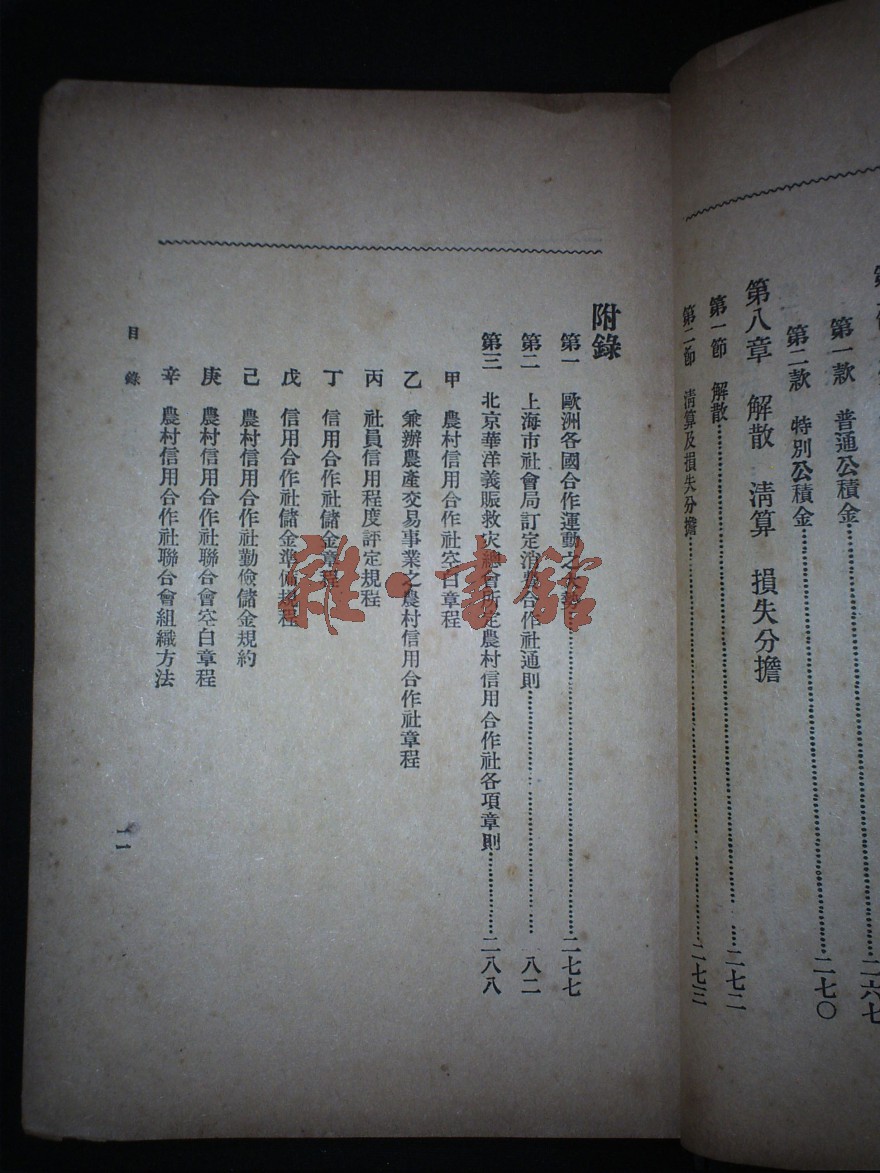 第一款　普通公積金……二六七
第二款　特別公積金……二七〇
第八章　解散　淸算　損失分擔
第一節　解散……二七二
第二節　淸算及損失分擔……二七三
附錄
第一　歐洲各國合作運動之大勢……二七七
第二　上海市社會局訂定消費合作社通則……八二
第三　北京華洋義賑救災總會所定農村信用合作社各項章則……二八八
甲　農村信用合作社空白章程
乙　兼辦農產交易事業之農村信用合作社章程
丙　社員信用程度評定規程
丁　信用合作社儲金章程
戊　信用合作社儲金準備規程
己　農村信用合作社勤儉儲金規約
庚　農村信用合作社聯合會空白章程
辛　農村信用合作社聯合會組織方法
目錄
一一
雜·書館